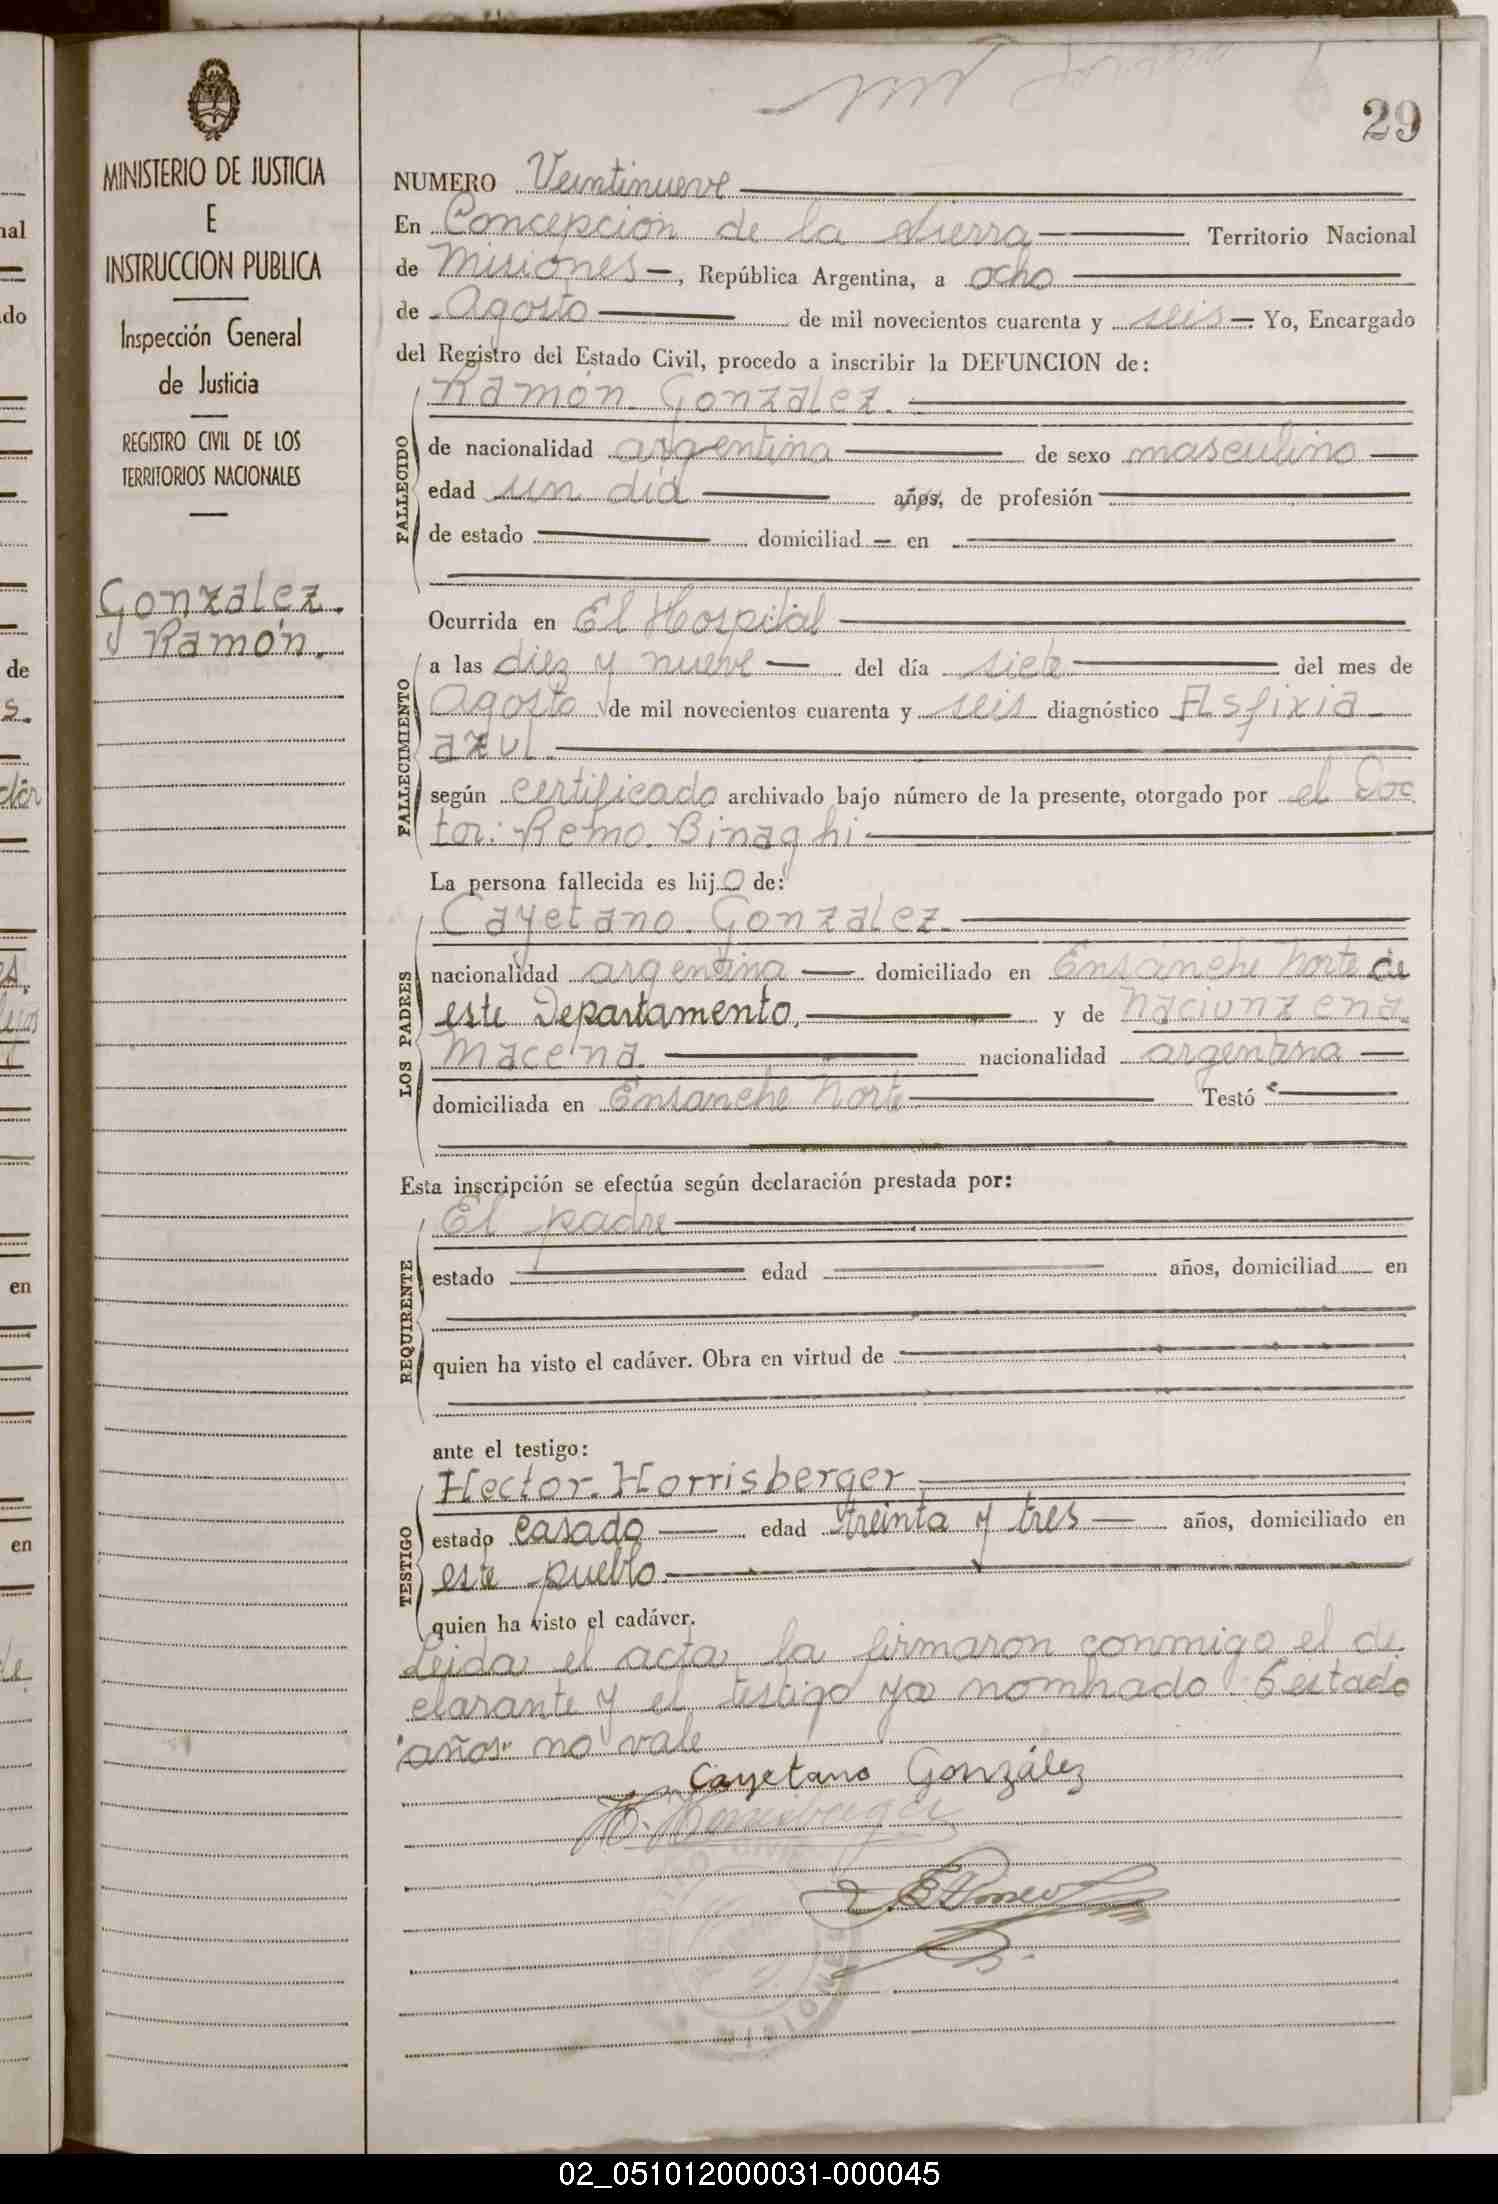 29
MINISTERIO DE JUSTICIA
E
INSTRUCCION PUBLICA
Inspección General
de Justicia
REGISTRO CIVIL DE LOS
TERRITORIOS NACIONALES
Gonzalez.
Ramón.
NUMERO Veintinueve
En Concepción de la Sierra Territorio Nacional
de Misiones, República Argentina, a ocho
de Agosto de mil novecientos cuarenta y seis. Yo, Encargado
del Registro del Estado Civil, procedo a inscribir la DEFUNCION de:
FALLECIDO
Ramón. Gonzalez.
de nacionalidad argentina de sexo masculino
edad un día años, de profesión
de estado domiciliad en
Ocurrida en El Hospital
FALLECIMIENTO
a las diez y nueve del día siete del mes de
Agosto de mil novecientos cuarenta y seis diagnóstico Asfixia
azul.
según certificado archivado bajo número de la presente, otorgado por el Doc
tor: Remo. Binaghi
La persona fallecida es hijo de:
LOS PADRES
Cayetano. Gonzalez.
nacionalidad argentina domiciliado en Ensanche Norte de
este Departamento, y de Naciunzena.
Macena. nacionalidad argentina
domiciliada en Ensanche Norte Testó
Esta inscripción se efectúa según declaración prestada por:
REQUIRENTE
El padre
estado edad años, domiciliad en
quien ha visto el cadáver. Obra en virtud de
ante el testigo:
TESTIGO
Hector. Horrisberger
estado casado edad treinta y tres años, domiciliado en
este pueblo.
quien ha visto el cadáver.
Leida el acta, la firmaron conmigo el de
clarante y el testigo ya nombrado. Testado
"años" no vale
Cayetano González
H. Horrisberger
MISIONES
nal
do
de
s.
en
en
02_051012000031-000045